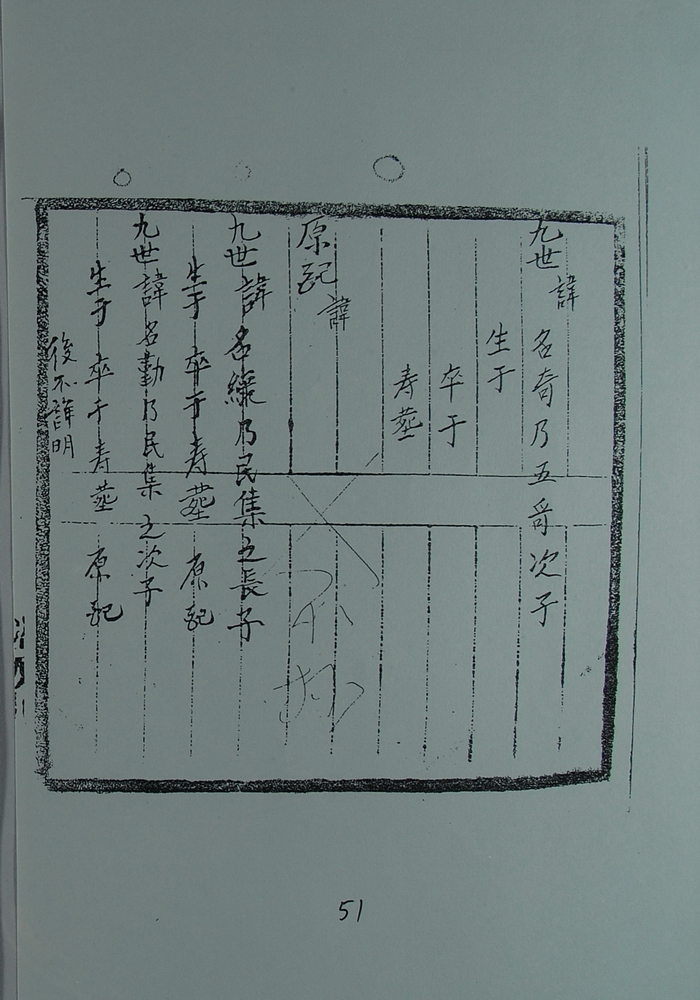 九世諱名奇乃五哥次子
生于
卒于
寿塟
原配諱
九世諱名緑乃民集之長子
生于卒于寿塟原配
九世諱名勤乃民集之次子
生于卒于寿塟原配
後不詳明
51